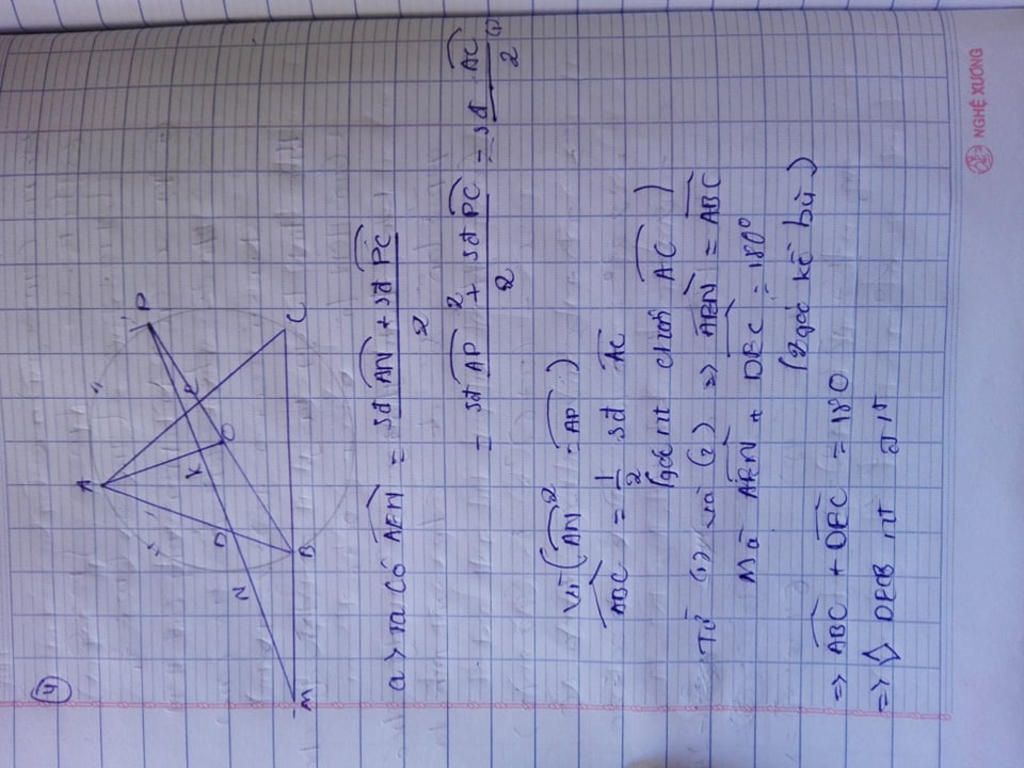 4
A
P
E
K
O
C
D
N
B
M
a> Ta có AEN = sđ AN + sđ PC / 2
= sđ AP + sđ PC / 2 = sđ AC / 2 (1)
Vì (AN = AP)
ABC = 1/2 sđ AC
(góc nt chắn AC)
Từ (1) và (2) => AEN = ABC
Mà AEN + DEC = 180°
(2 góc kề bù)
=> ABC + DEC = 180
=> DECB nt
NGHỆ XƯƠNG